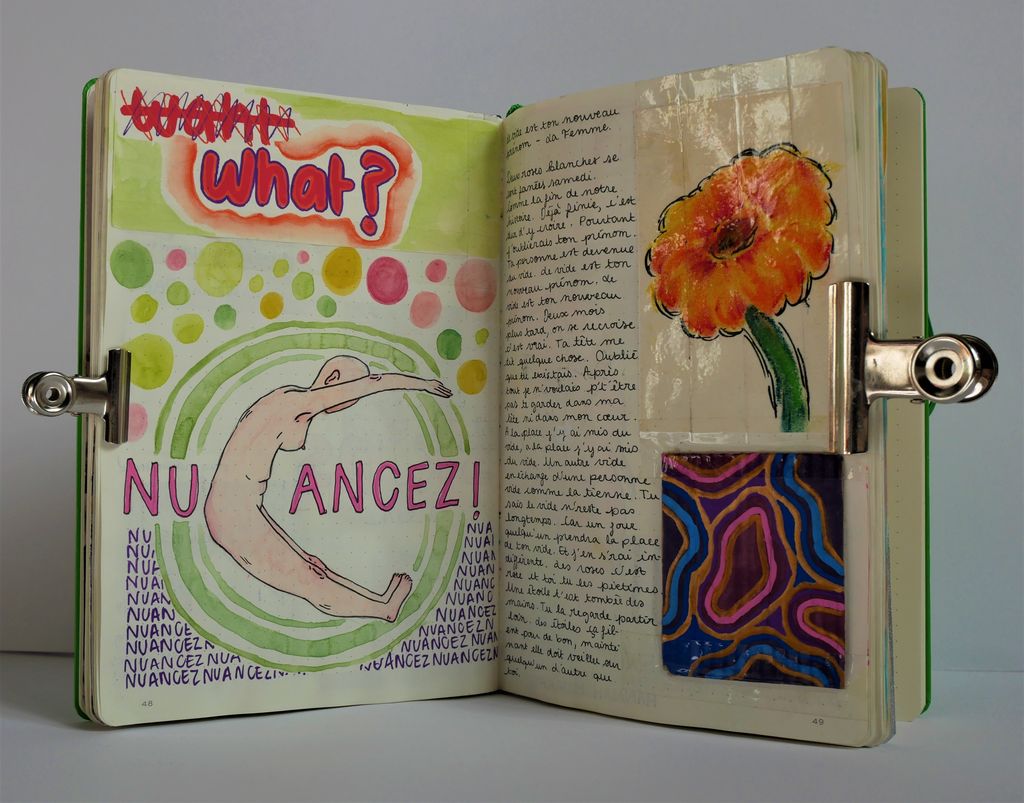 waht
What?
NU ANCEZ!
NU NUA
NU NUA
NUA NUAN
NUA NUANC
NUAN NUANCE
NUANC NUANCE
NUANCE NUANCEZ
NUANCEZN NUANCEZN
NUANCEZ NUA NUANCEZNUANCEZ
NUANCEZNUANCEZN
48
Le vide est ton nouveau
prénom - La Femme.
Deux roses blanches se
sont fanées samedi.
Comme la fin de notre
histoire. Déjà finie, c'est
dur d'y croire. Pourtant
j'oublierais ton prénom.
Ta personne est devenue
du vide. Le vide est ton
nouveau prénom. Le
vide est ton nouveau
prénom. Deux mois
plus tard, on se recroise
c'est vrai. Ta tête me
dit quelque chose. Oublié
que tu existais. Après
tout je n'voulais p't'être
pas te garder dans ma
tête ni dans mon cœur.
A la place j'y ai mis du
vide, à la place j'y ai mis
du vide. Un autre vide
en échange d'une personne
vide comme la tienne. Tu
sais le vide n'reste pas
longtemps. Car un jour
quelqu'un prendra la place
de ton vide. Et j'en s'rai in-
différente. Les roses c'est
rose et toi tu les piétines
Une étoile t'est tombée des
mains. Tu la regarde partir
loin. Les étoiles ça fil-
ent pour de bon, mainte
nant elle doit veiller sur
quelqu'un d'autre que
toi.
49